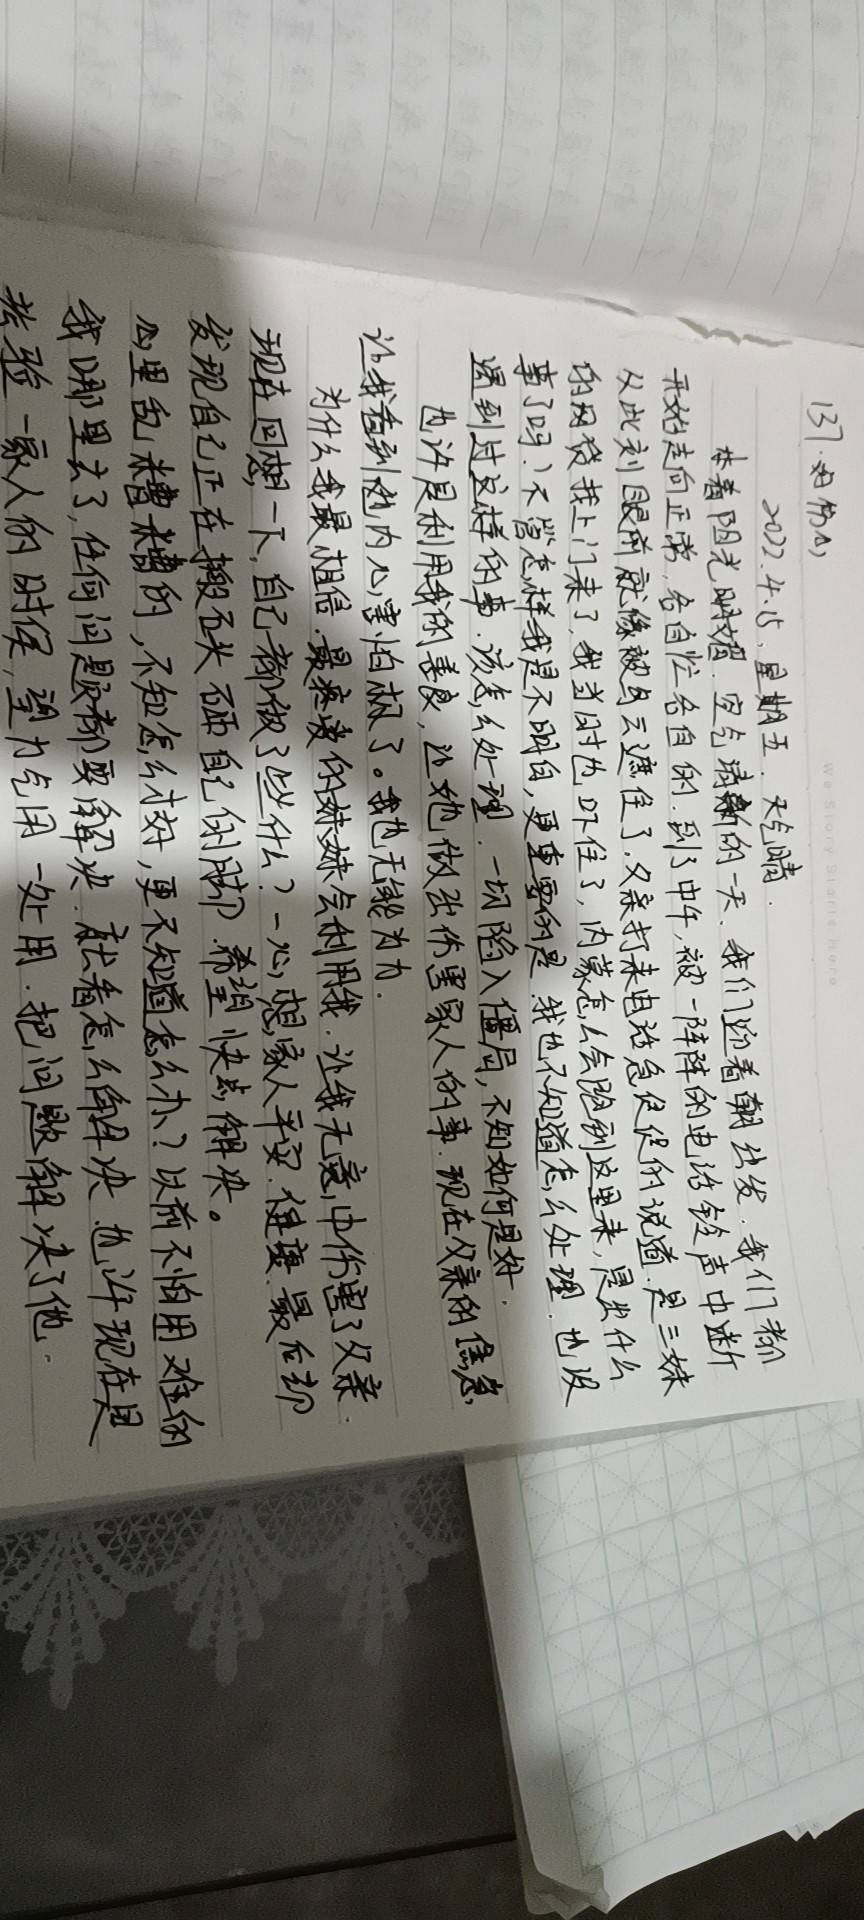 137.
2022.4.15、星期五. 天气晴.
沐着阳光明媚.空气清新的一天、我们迎着朝出发.我们都
开始走向正常,各自忙各自的.到了中午,被一阵阵的电话铃声中断
从此刻眼前就像被乌云遮住了.父亲打来电话急促促的说道.是三妹
的网贷找上门来了,我当时也吓住了,内蒙怎么会跑到这里来,是出什么
事了吗?不管怎样我是不明白,更重要的是.我也不知道怎么处理.也没
遇到过这样的事.该怎么处理.一切陷入僵局,不知如何是好.
也许是利用我的善良,让她做出伤害家人的事.现在父亲的焦急,
让我看到他内心害怕极了。我也无能为力.
为什么我最相信.最疼爱的妹妹会利用我.让我无意中伤害了父亲.
现在回想一下,自己都做了些什么?一心想家人平安.健康.最后却
发现自己正在搬石头砸自己的脚.希望快点解决。
心里乱糟糟的,不知怎么才好,更不知道怎么办?以前不怕困难的
我哪里去了,任何问题都要解决.就看怎么解决.也许现在是
考验一家人的时候,望力气用一处用.把问题解决了他.
We Story Starts Here